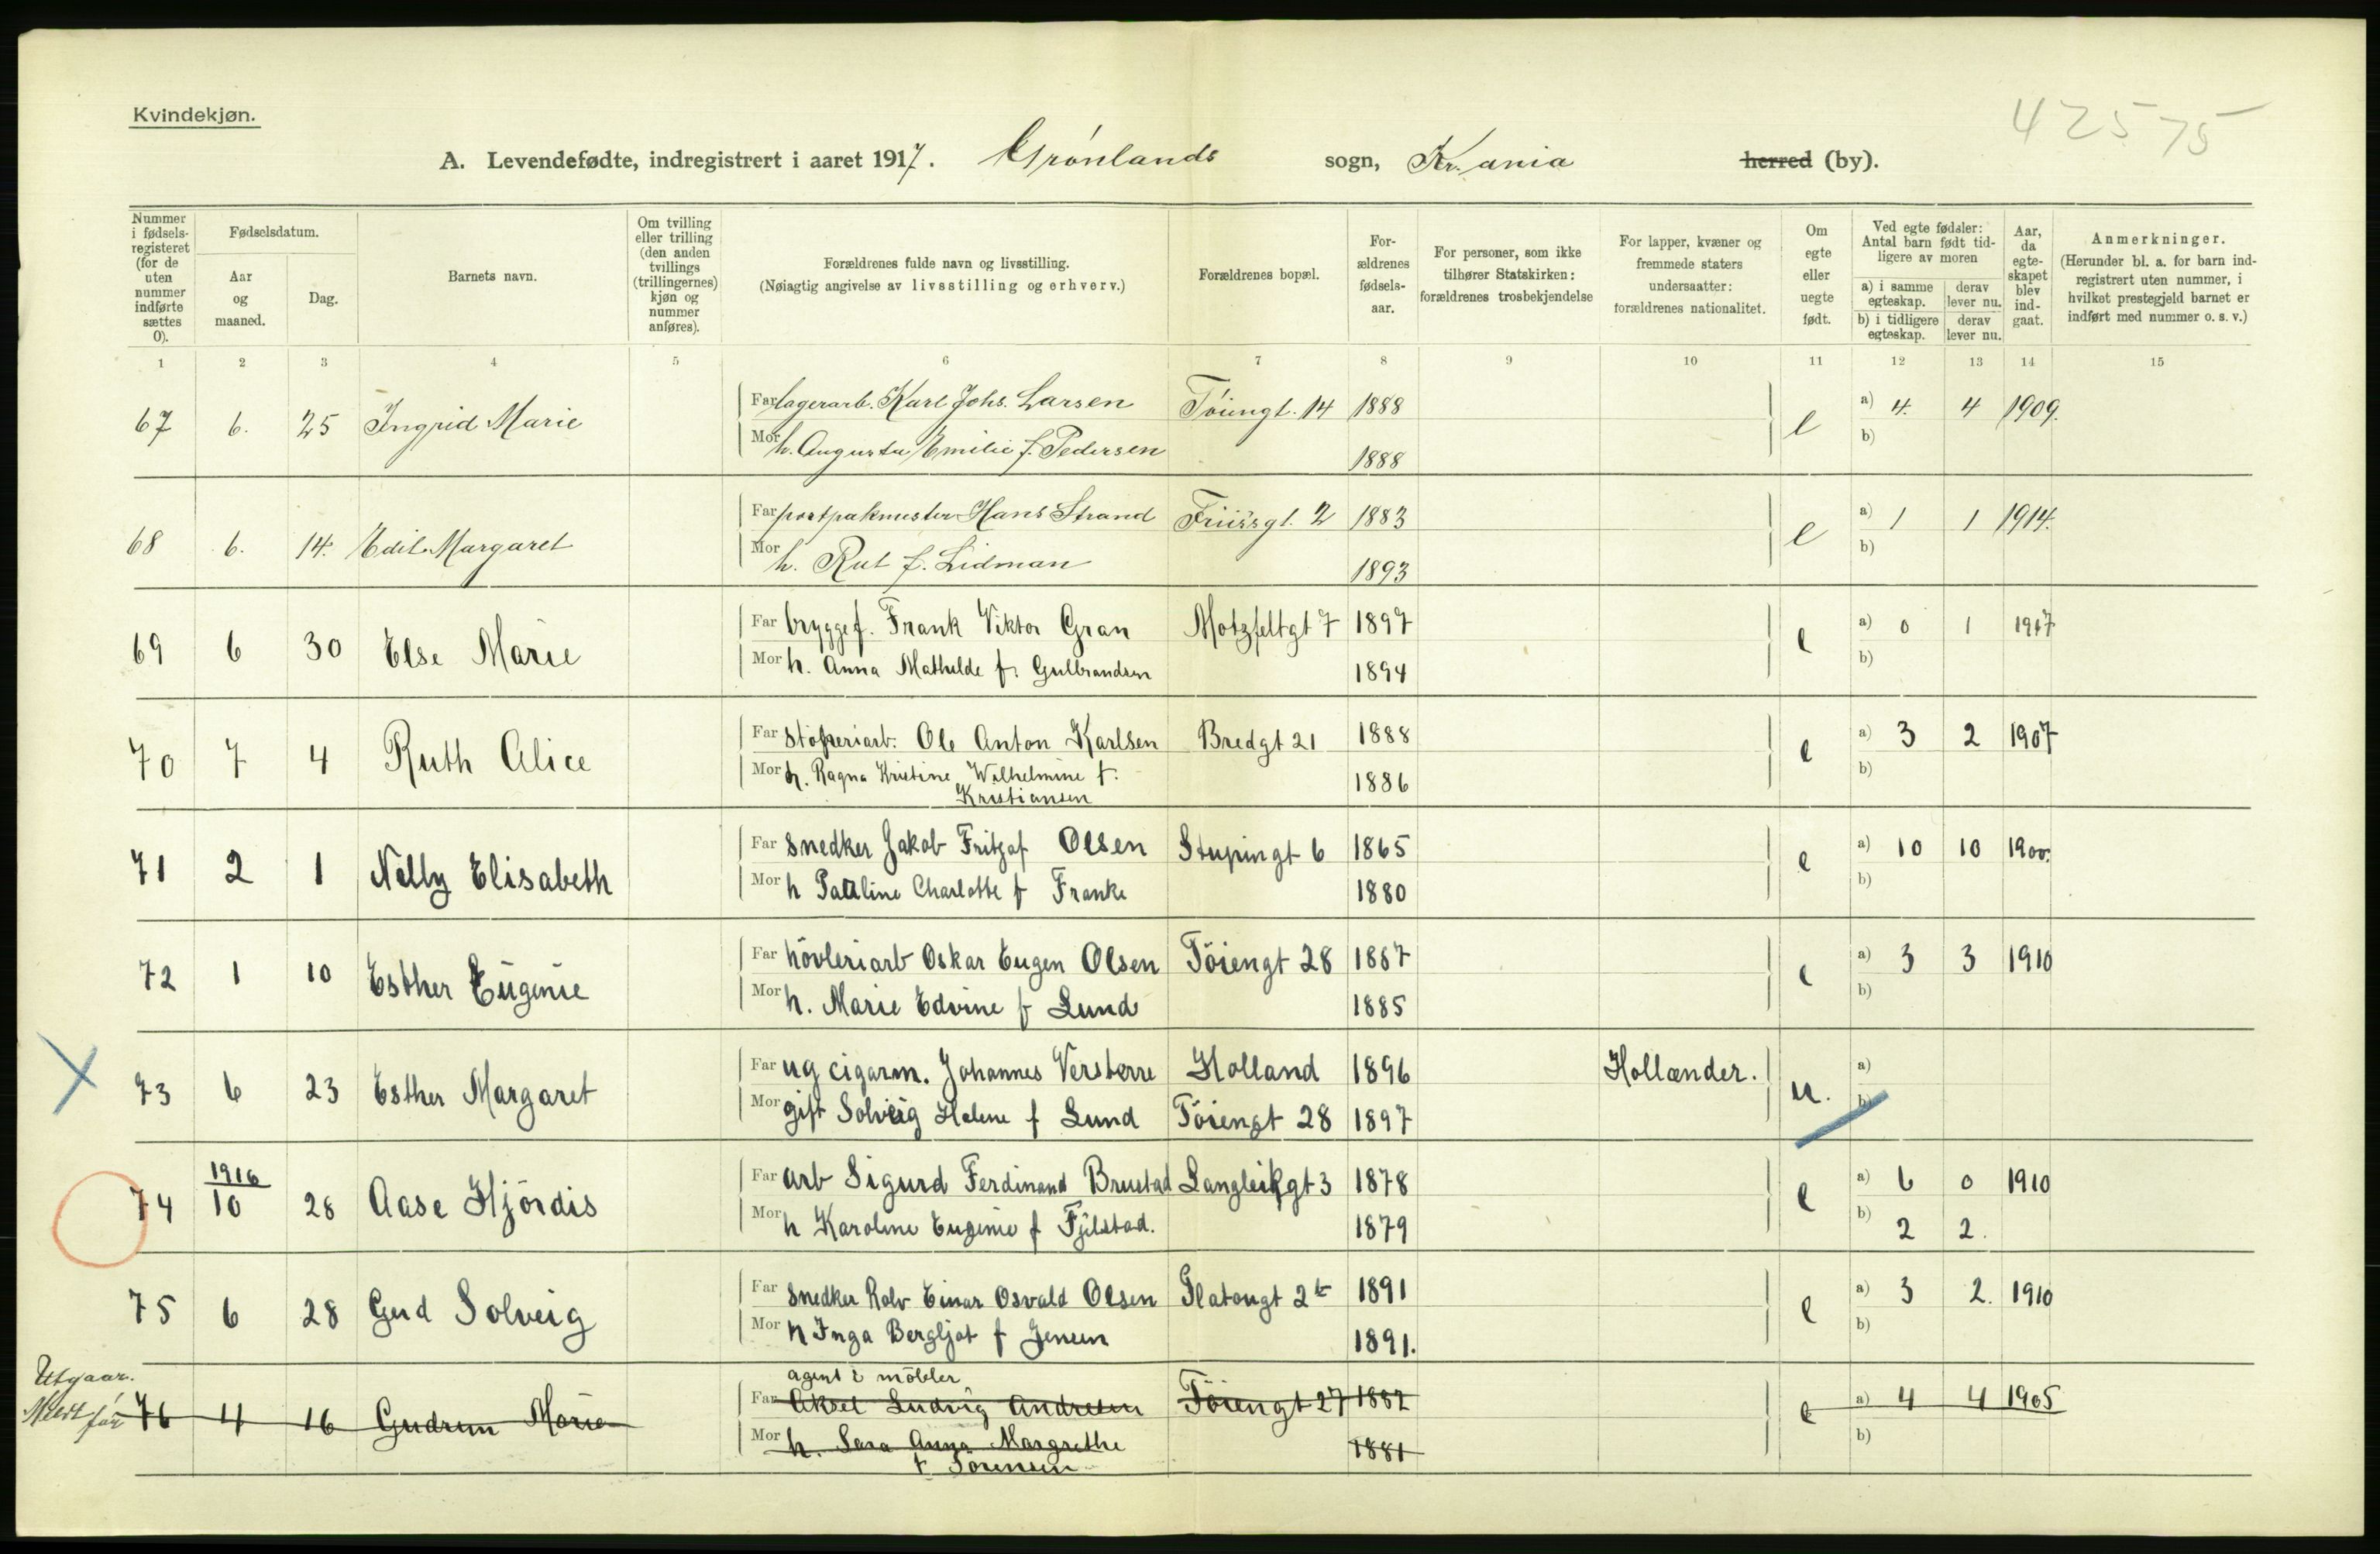 Kvindekjøn.
42575
A. Levendefødte, indregistrert i aaret 1917. Grønlands sogn, Kr.ania herred (by).
Nummer i fødsels-registeret (for de uten nummer indførte sættes 0).
Fødselsdatum.
Aar og maaned.
Dag.
Barnets navn.
Om tvilling eller trilling (den anden tvillings (trillingernes) kjøn og nummer anføres).
Forældrenes fulde navn og livsstilling.
(Nøiagtig angivelse av livsstilling og erhverv.)
Forældrenes bopæl.
For-ældrenes fødsels-aar.
For personer, som ikke tilhører Statskirken: forældrenes trosbekjendelse
For lapper, kvæner og fremmede staters undersaatter: forældrenes nationalitet.
Om egte eller uegte født.
Ved egte fødsler: Antal barn født tid-ligere av moren
a) i samme egteskap.
derav lever nu.
b) i tidligere egteskap.
derav lever nu.
Aar, da egte-skapet blev ind-gaat.
Anmerkninger.
(Herunder bl. a. for barn ind-registrert uten nummer, i hvilket prestegjeld barnet er indført med nummer o. s. v.)
1 2 3 4 5 6 7 8 9 10 11 12 13 14 15
67 6. 25 Ingrid Marie Far lagerarb. Karl Johs. Larsen Tøiengt. 14 1888 e a) 4. 4 1909.
Mor h. Augusta Emilie f. Pedersen 1888 b)
68 6. 14. Edit Margaret Far postpakmester Hans Strand Friisgt. 2 1883 e a) 1 1 1914.
Mor h. Rut f. Lidman 1893 b)
69 6 30 Else Marie Far bryggef. Frank Viktor Gran Motzfeltgt 7 1897 e a) 0 1 1917
Mor h. Anna Mathilde f. Gulbrandsen 1894 b)
70 7 4 Ruth Alice Far støperiarb. Ole Anton Karlsen Bredgt 21 1888 e a) 3 2 1907
Mor h. Ragna Kristine Wilhelmine f. 1886 b)
Kristiansen
71 2 1 Nelly Elisabeth Far snedker Jakob Fritjof Olsen Stupingt 6 1865 e a) 10 10 1900.
Mor h Pauline Charlotte f Franke 1880 b)
72 1 10 Esther Eugenie Far høvleriarb Oskar Eugen Olsen Tøiengt 28 1887 e a) 3 3 1910
Mor h. Marie Edvine f Lund 1885 b)
73 6 23 Esther Margaret Far ug cigarm. Johannes Versterre Holland 1896 Hollænder. u. a)
Mor gift Solveig Helene f Lund Tøiengt 28 1897 b)
1916
74 10 28 Aase Hjørdis Far arb Sigurd Ferdinand Brustad Langleikgt 3 1878 e a) 6 0 1910
Mor h Karoline Eugenie f Fjilstad. 1879 b) 2 2.
75 6 28 Gerd Solveig Far snedker Rolv Einar Osvald Olsen Platougt 2b 1891 e a) 3 2. 1910
Mor h Inga Bergljot f Jensen 1891. b)
Utgaar.
agent i møbler
76 4 16 Gudrun Marie Far Aksel Ludvig Andresen Tøiengt 27 1882 e a) 4 4 1905
Mor h. Sara Anna Margrethe 1881 b)
f Sørensen